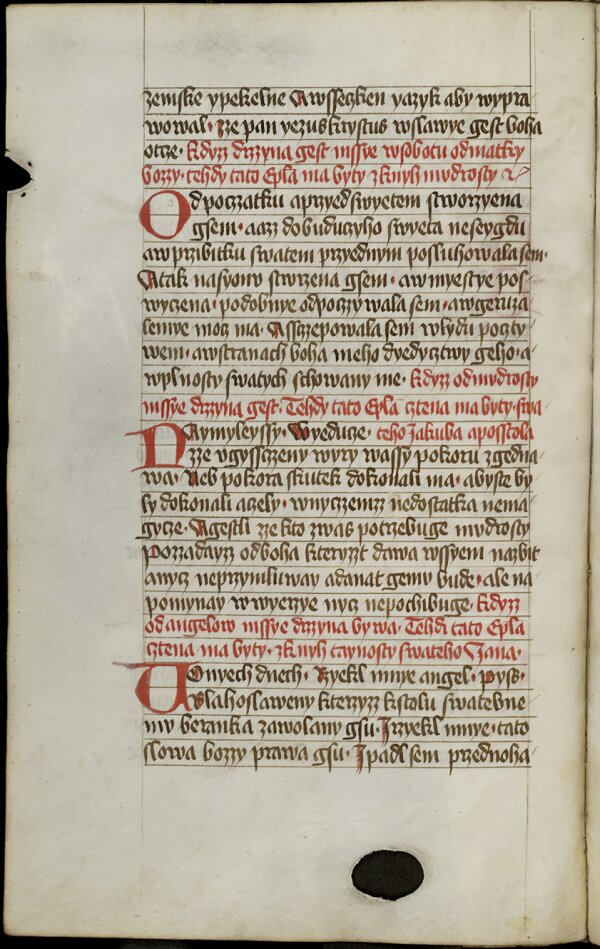 zemske ypekelne Awsseczken yazyk aby wypra
wowal · zze pan yezuskrystus wslawye gest boha
otcze · kdyzz drzyna gest mssye wsobotu odmatky
bozzy · tehdy tato Epla ma byty zknyh mudrosty
Od poczatku aprzyed swyetem stworzyena
gsem · aazz dobuduczyho swyeta neseygdu
aw przibitku swatem przyednym posluhowala sem ·
Atak nasyonu stwrzena gsem · awmyestye pos
wyczena · podobnye odpoczywala sem · awgeruza
lemye moczma · Asszzepowala sem wlydu poczty
wem · awstranach boha meho dyedycztwy geho · a
wplnosty swatych schowany me · kdyzz odmudrosty
mssye drzyna gest · Tehdy tato Epla cztena ma byty · swa
Naymyleyssy · Wyeducze · teho Jakuba aposstola
zze ugyssczeny wyry wassy pokoru zgedna
wa · Neb pokora skutek dokonali ma · abyste by
ly dokonali aczely · wnyczemzz nedostatka nema
gycze · Agestli zze kto zwas potrzebuge mudrosty
Pozzadayzz odboha kteryzzt dawa wssyem nazbit
anycz neprzymluway adanat gemu bude · ale na
pomynay wwyerzye nycz nepochibuge · kdyzz
od angelow mssye drzyna bywa · Tehdi tato Epla
cztena ma byty · zknyh taynosty swateho Jana ·
Wonyech dnech · Rzyekl mnye angel · Pyss ·
Blahoslaweny kterzyzz kstolu swatebne
mu beranka zawolany gsu · Irzyekl mnye · tato
slowa bozzy prawa gsu · Ipadl sem przednoha